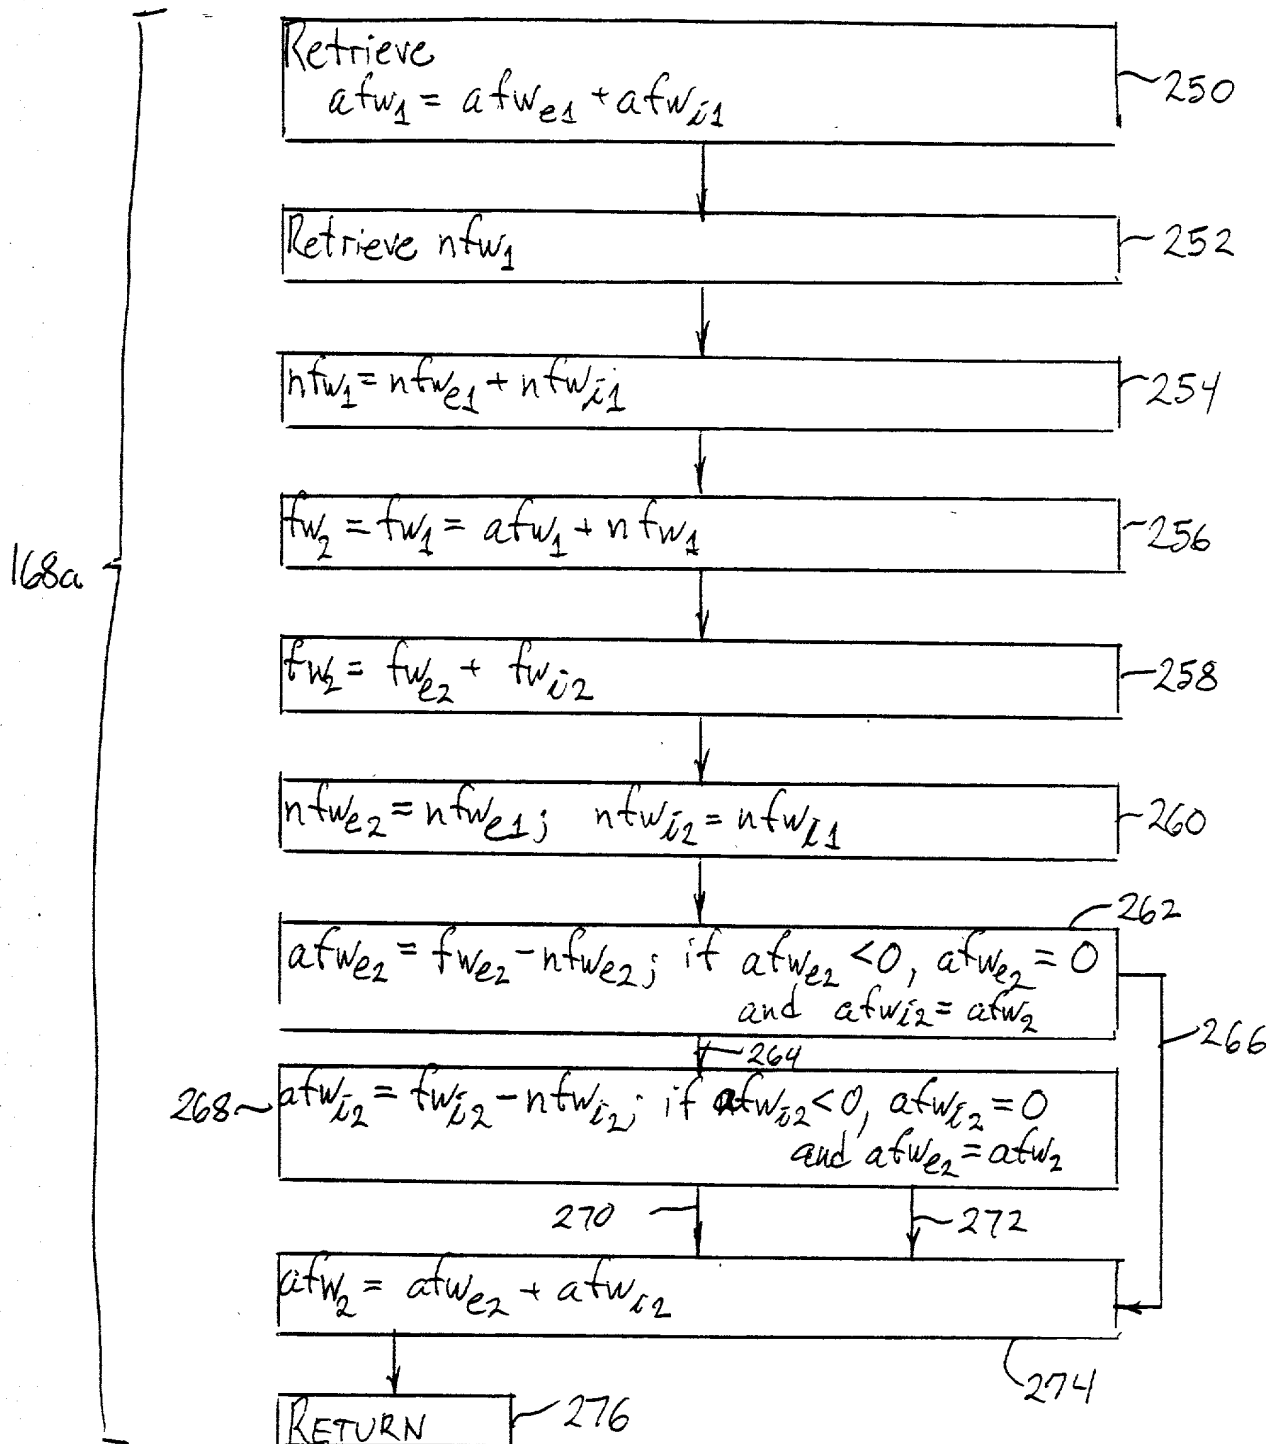 Retrieve
afw₁ = afwₑ₁ + afwᵢ₁
250
Retrieve nfw₁
252
nfw₁ = nfwₑ₁ + nfwᵢ₁
254
fw₂ = fw₁ = afw₁ + nfw₁
256
168a
fw₂ = fwₑ₂ + fwᵢ₂
258
nfwₑ₂ = nfwₑ₁; nfwᵢ₂ = nfwᵢ₁
260
262
afwₑ₂ = fwₑ₂ - nfwₑ₂; if afwₑ₂ <0, afwₑ₂ = 0
and afwᵢ₂ = afw₂
266
264
268
afwᵢ₂ = fwᵢ₂ - nfwᵢ₂; if afwᵢ₂ <0, afwᵢ₂ = 0
and afwₑ₂ = afw₂
270
272
afw₂ = afwₑ₂ + afwᵢ₂
274
RETURN
276